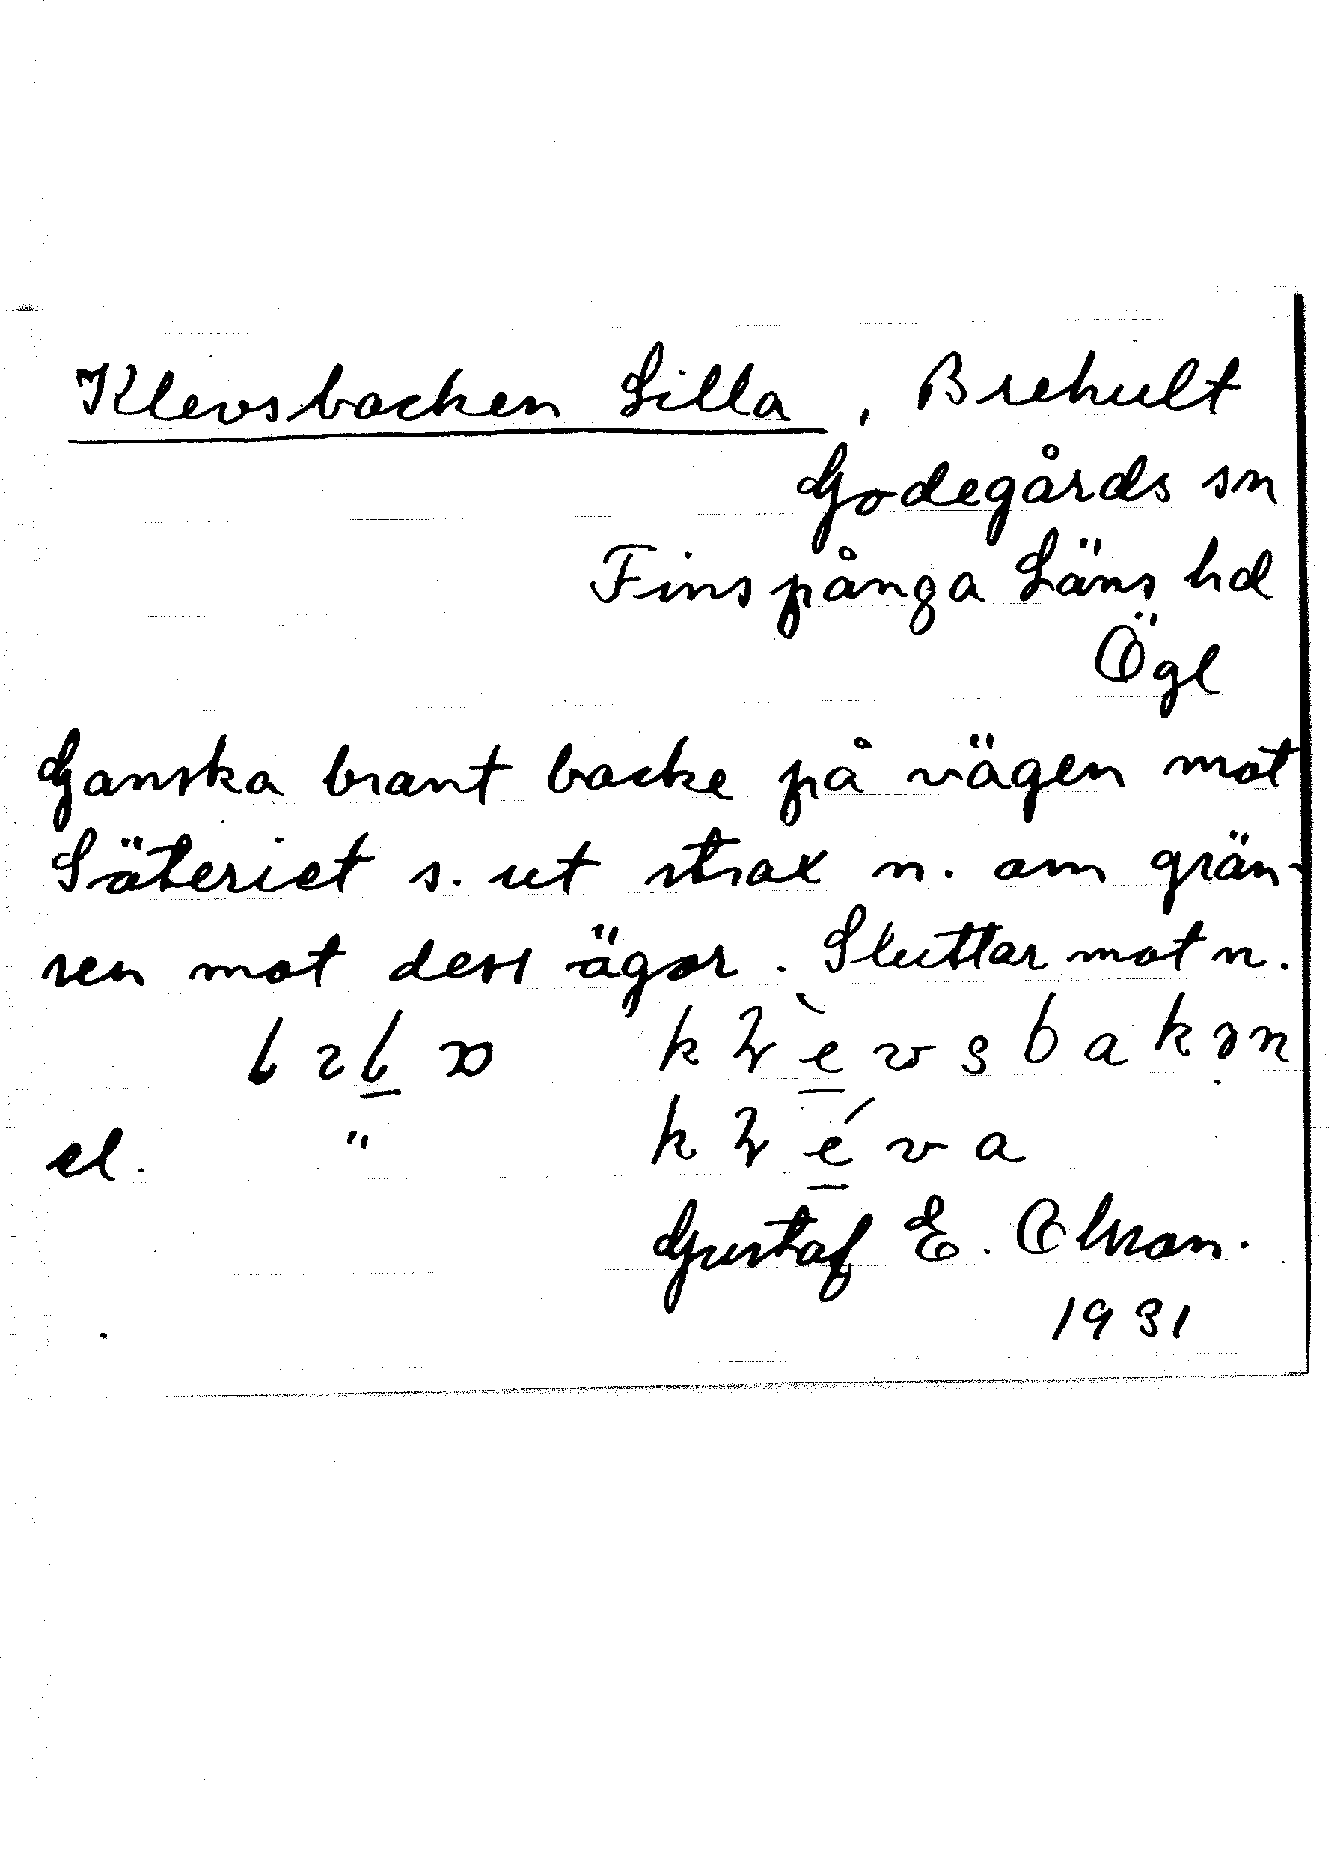 Klevsbacken Lilla, Brehult
Godegårds sn
Finspånga Läns hd
Ögl
Ganska brant backe på vägen mot
Säteriet s. ut strax n. om grän-
sen mot dess ägor. Sluttar mot n.
kɽèvsbakən
el. " kɽéva
Gustaf E. Olsson.
1931